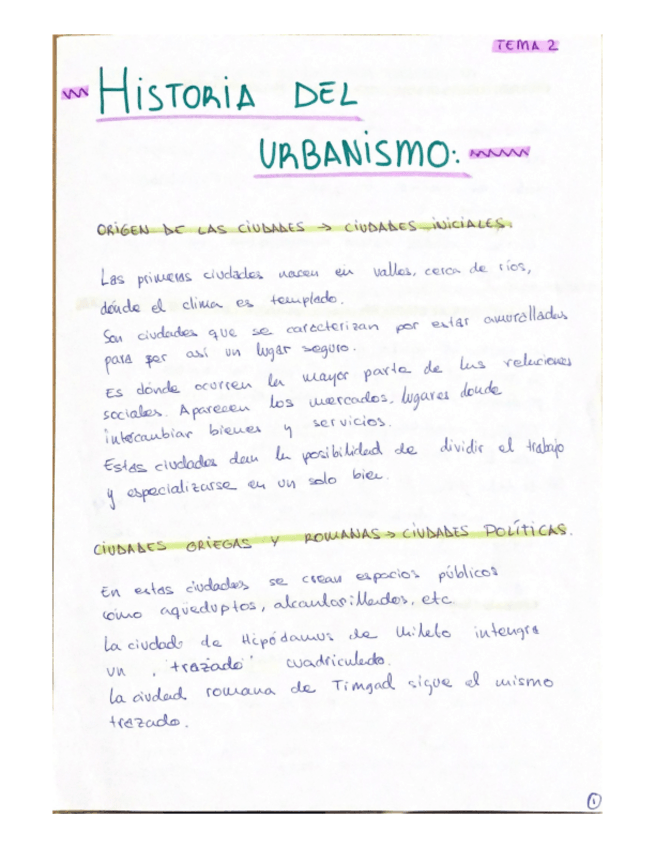 TEMA 2
HISTORIA DEL
URBANISMO:
ORIGEN DE LAS CIUDADES → CIUDADES INICIALES.
Las primeras ciudades nacen en valles, cerca de ríos,
dónde el clima es templado.
Son ciudades que se caracterizan por estar amuralladas
para ser así un lugar seguro.
Es dónde ocurren la mayor parte de las relaciones
sociales. Aparecen los mercados, lugares donde
intercambiar bienes y servicios.
Estas ciudades dan la posibilidad de dividir el trabajo
y especializarse en un solo bien.
CIUDADES GRIEGAS Y ROMANAS → CIUDADES POLÍTICAS.
En estas ciudades se crean espacios públicos
como aqueduptos, alcantarillados, etc
La ciudad de Hipódamus de Mileto integra
un "trazado" cuadriculado.
La ciudad romana de Timgad sigue el mismo
trazado.
1